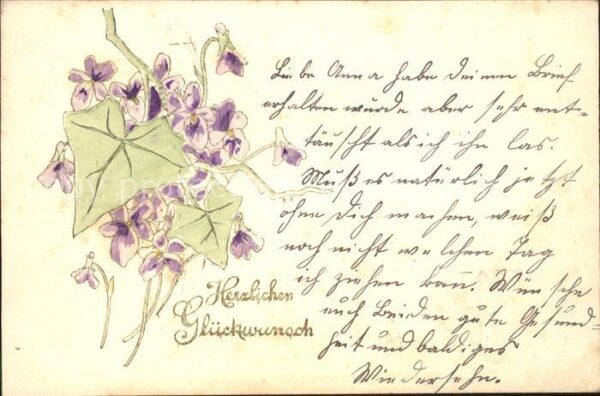 Liebe Anna habe deinen Brief
erhalten wurde aber sehr ent-
täuscht als ich ihn las.
Muß es natürlich jetzt
ohne Dich machen, weiß
noch nicht welchen Tag
ich ziehen kann. Wünsche
euch Beiden gute Gesund-
heit und baldiges
Wiedersehn.
Herzlichen
Glückwunsch